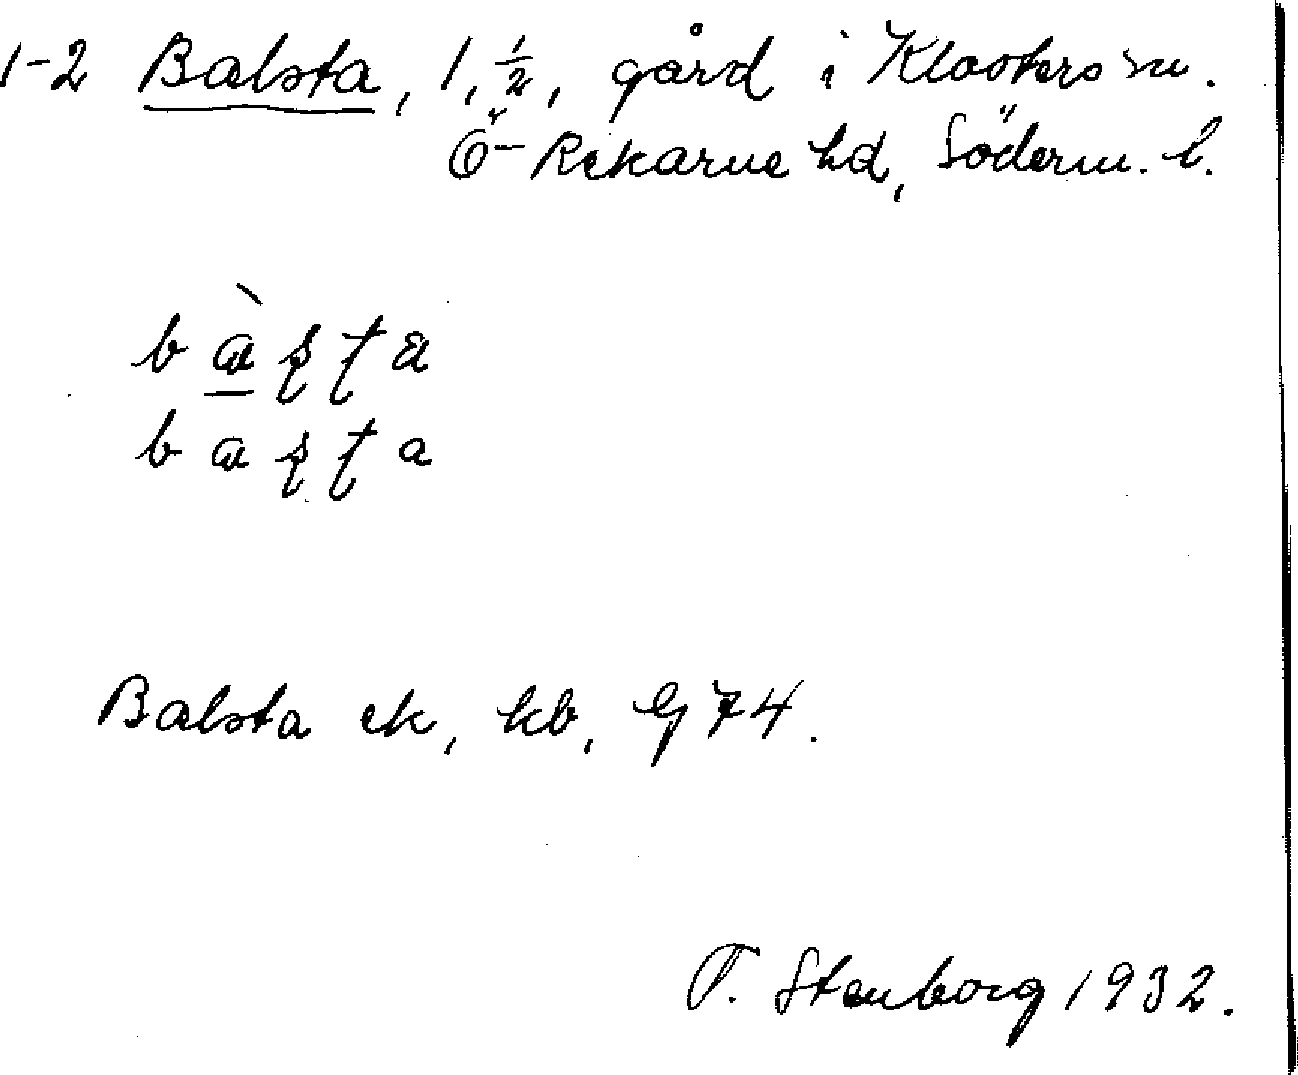 1-2 Balsta, 1, ½, gård i Klosters sn.
Ö-Rekarne hd, Söderm. l.
b à̱ ʂ ʈ a
b a ʂ ʈ a
Balsta ek, kb, Eg 74.
T. Stenborg 1932.